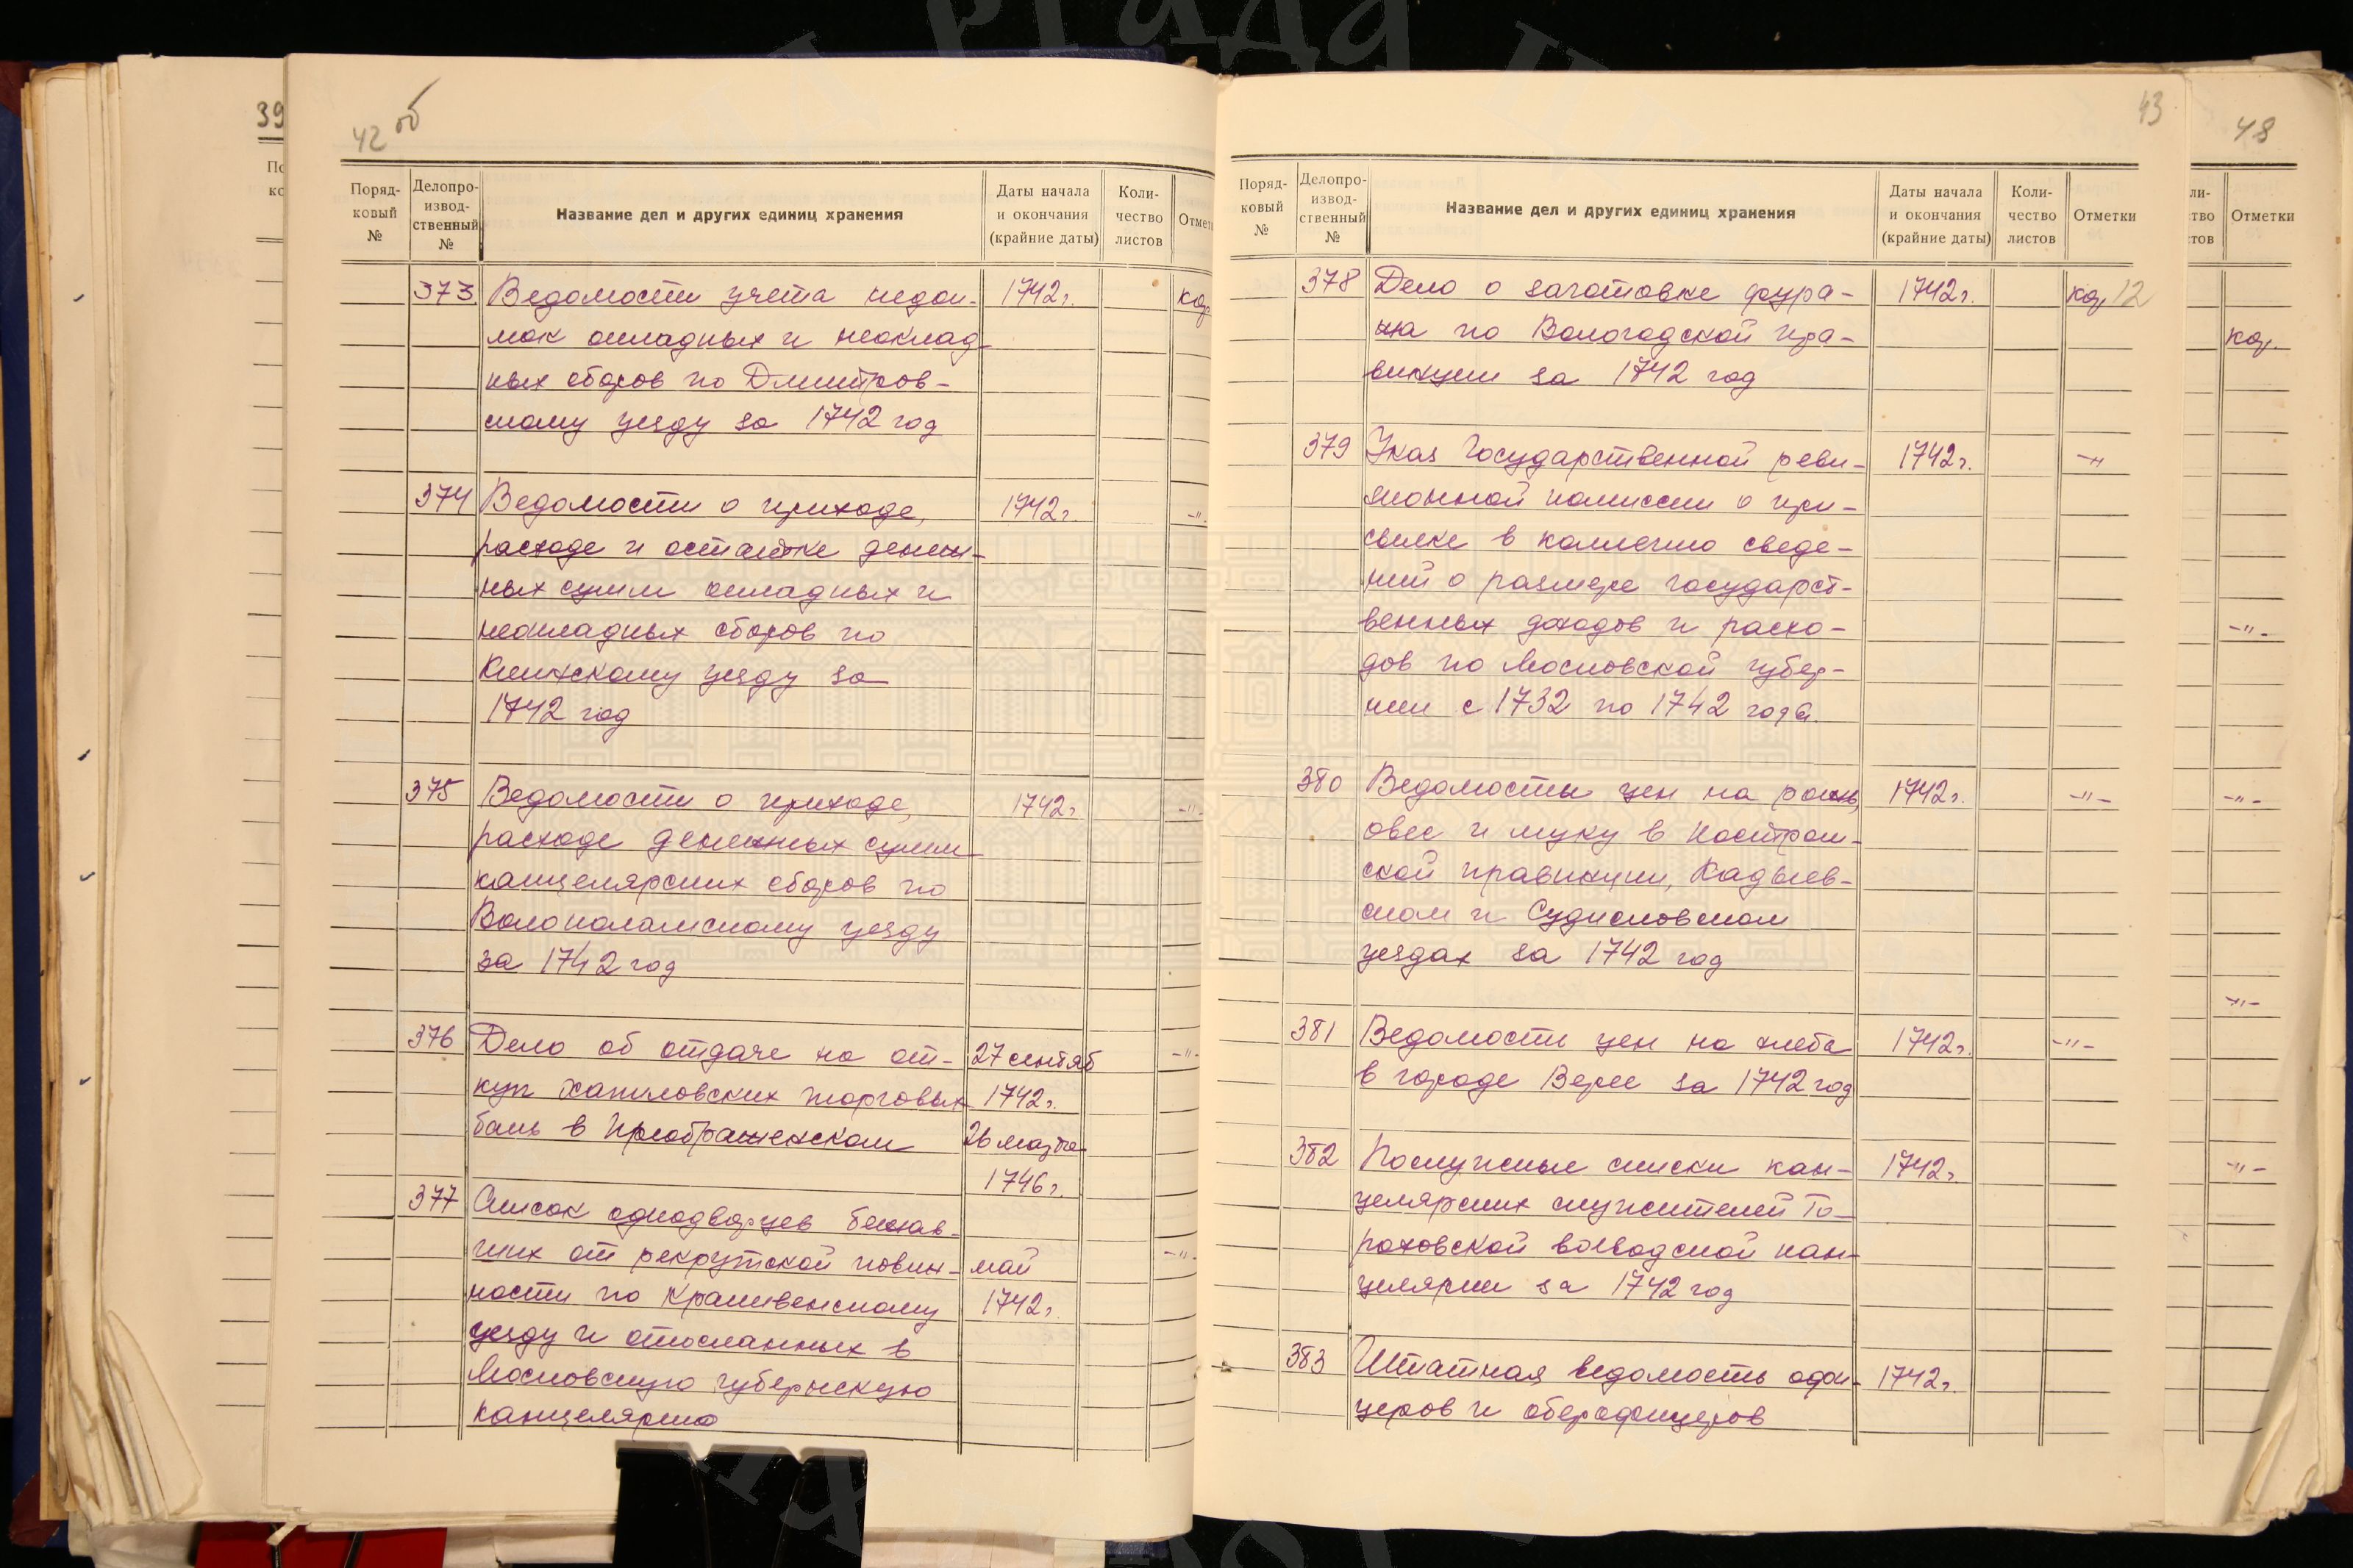 42 об
Поряд-
ковый
№
Делопро-
извод-
ственный
№
Название дел и других единиц хранения
Даты начала
и окончания
(крайние даты)
Коли-
чество
листов
373 Ведомости учета недои- 1742 г.
мок окладных и неоклад-
ных сборов по Дмитров-
скому уезду за 1742 год
374 Ведомости о приходе, 1742 г. -"-
расходе и остатке денеж-
ных сумм окладных и
неокладных сборов по
Клинскому уезду за
1742 год
375 Ведомости о приходе, 1742 г. -"-
расходе денежных сумм
канцелярских сборов по
Волоколамскому уезду
за 1742 год
376 Дело об отдаче на от- 27 сентяб -"-
куп Хапиловских торговых 1742 г.
бань в Преображенском 26 марта
1746 г.
377 Список однодворцев бежав-
ших от рекрутской повин- май -"-
ности по Крапивенскому 1742 г.
уезду и отосланных в
Московскую губернскую
канцелярию
43
Поряд-
ковый
№
Делопро-
извод-
ственный
№
Название дел и других единиц хранения
Даты начала
и окончания
(крайние даты)
Коли-
чество
листов
Отметки
378 Дело о заготовке фура- 1742 г. 12
жа по Вологодской про-
винции за 1742 год
379 Указ Государственной реви- 1742 г. -"
зионной комиссии о при-
сылке в коллегию сведе-
ний о размере государст-
венных доходов и расхо-
дов по Московской губер-
нии с 1732 по 1742 года
380 Ведомости цен на рожь, 1742 г. -"-
овес и муку в Костром-
ской провинции, Кадыев-
ском и Судисловском
уездах за 1742 год
381 Ведомости цен на хлеба 1742 г. -"-
в городе Верее за 1742 год
382 Послужные списки кан- 1742 г.
целярских служителей Го-
роховской воеводской кан-
целярии за 1742 год
383 Штатная ведомость офи- 1742 г.
церов и оберофицеров
39
48
Отметки
-"-
-"-
-"-
-"-